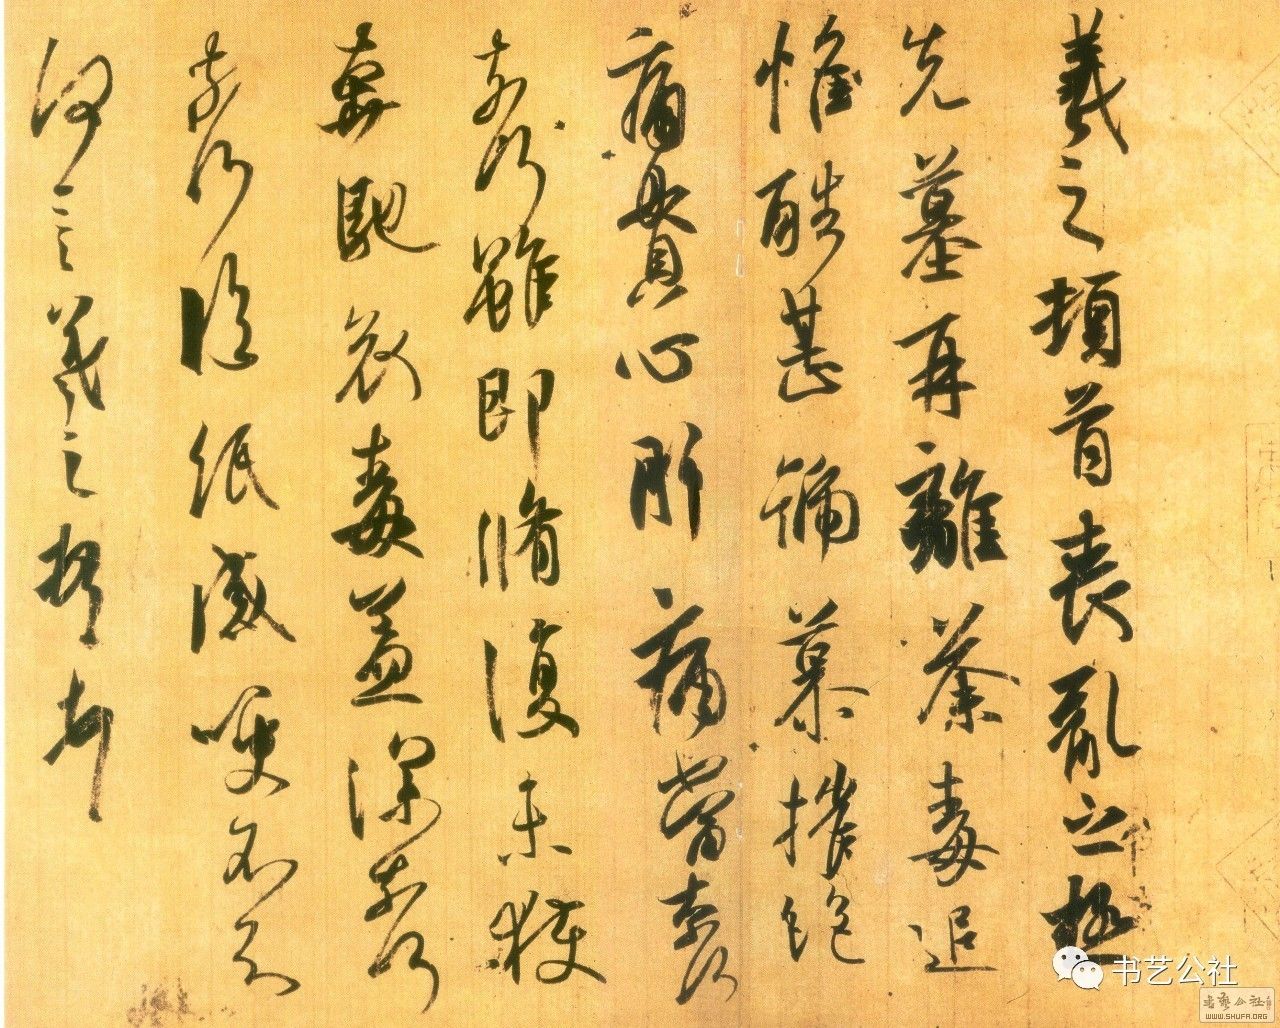 羲之頓首喪亂之極
先墓再離荼毒追
惟酷甚號慕摧絕
痛貫心肝痛當奈何
奈何雖即脩復未獲
奔馳哀毒益深奈何
奈何臨紙感哽不知
何言羲之頓首頓首
书艺公社
书艺公社
WWW.SHUFA.ORG